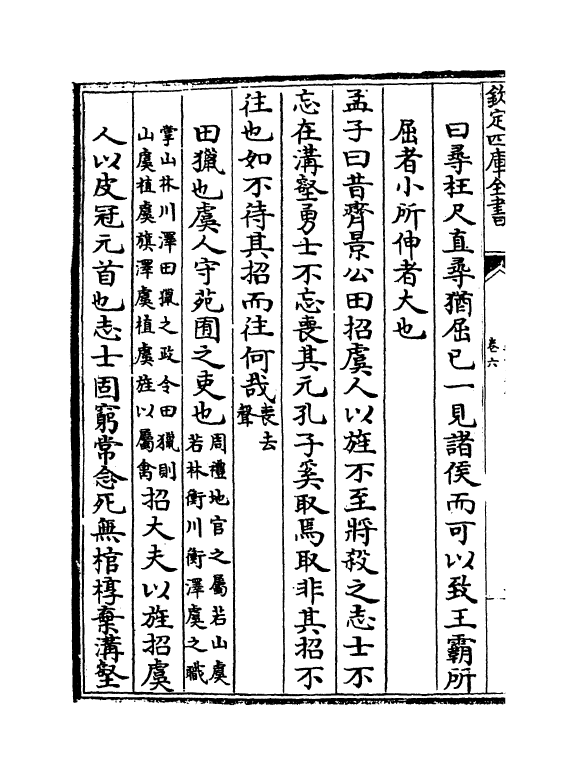 欽定四庫全書
卷六
曰尋枉尺直尋猶屈己一見諸侯而可以致王霸所
屈者小所伸者大也
孟子曰昔齊景公田招虞人以旌不至將殺之志士不
忘在溝壑勇士不忘喪其元孔子奚取焉取非其招不
往也如不待其招而往何哉喪去聲
田獵也虞人守苑囿之吏也周禮地官之屬若山虞若林衡川衡澤虞之職
掌山林川澤田獵之政令田獵則山虞植虞旗澤虞植虞旌以屬禽招大夫以旌招虞
人以皮冠元首也志士固窮常念死無棺椁棄溝壑